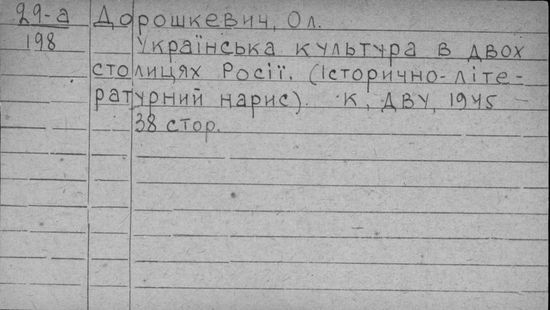 29-а Дорошкевич, Ол.
198 Українська культура в двох
столицях Росії. (Історично-літе-
ратурний нарис). К, ДВУ, 1945
38 стор.